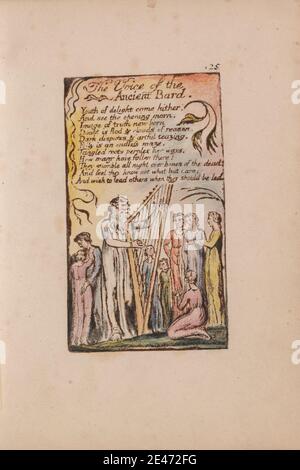 25
The Voice of the
Ancient Bard.
Youth of delight come hither.
And see the opening morn.
Image of truth new born.
Doubt is fled & clouds of reason.
Dark disputes & artful teazing.
Folly is an endless maze.
Tangled roots perplex her ways,
How many have fallen there!
They stumble all night over bones of the dead;
And feel they know not what but care;
And wish to lead others when they should be led
alamy
Image ID: 2E472FG
www.alamy.com